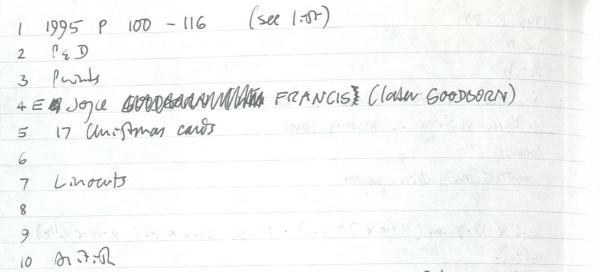 1 1995 P 100 - 116 (see list)
2 P&D
3 Prints
4 E Joyce FRANCIS (later GOODBORN)
5 17 Christmas cards
6
7 Linocuts
8
9
10